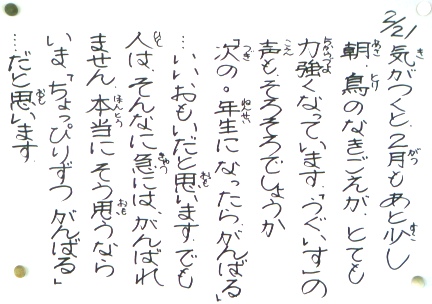 2/21 気がつくと、2月もあと少し
朝、鳥のなきごえが、とても
力強くなっています。「うぐいす」の
声も、そろそろでしょうか
「次の。年生になったら、がんばる」
…いいおもいだと思います。でも
人は、そんなに急には、がんばれ
ません。本当にそう思うなら
いま、「ちょっぴりずつがんばる」
…だと思います。